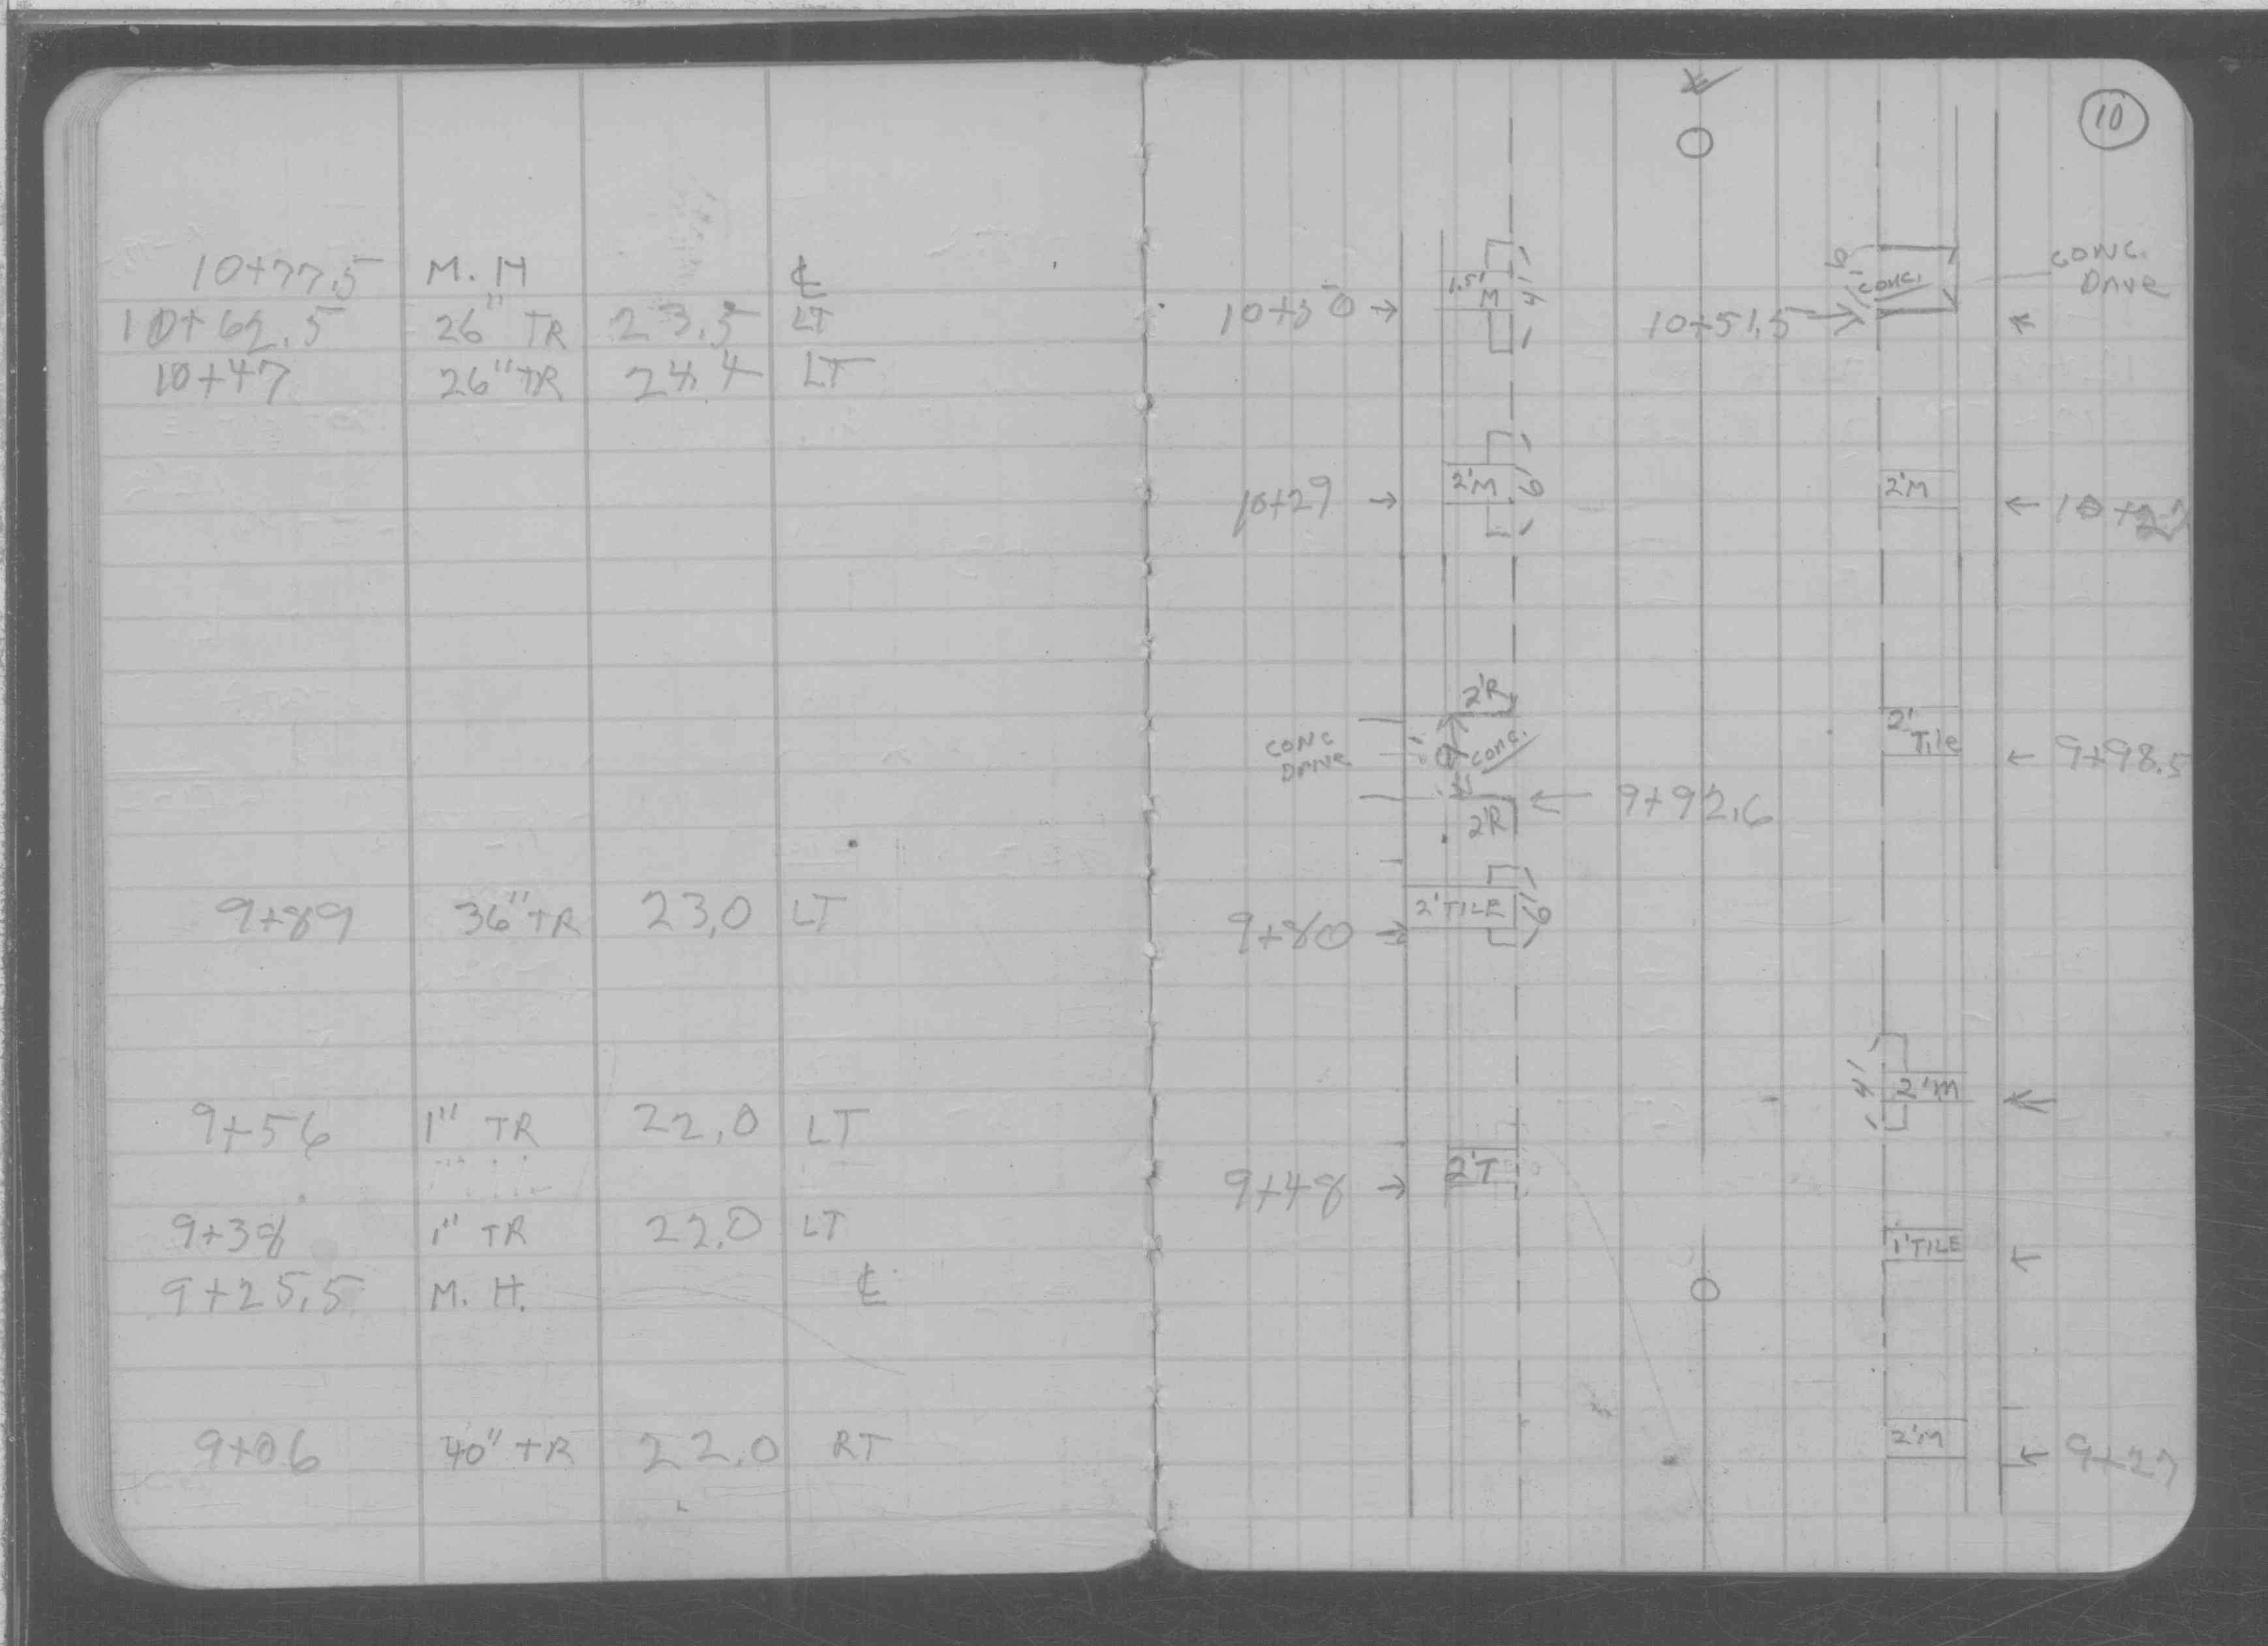 10+77.5 M. H ℄
10+62.5 26" TR 23.5 LT
10+47 26" TR 24.4 LT
9+89 36" TR 23.0 LT
9+56 1" TR 22.0 LT
9+38 1" TR 22.0 LT
9+25.5 M. H. ℄
9+06 40" TR 22.0 RT
10
CONC.
DRIVE
6'
CONC.
1.5'
M
4'
10+50 →
10+51.5
10+29 → 2'M 6'
2'M ←
2'R
CONC
DRIVE
CONC.
2'
Tile
← 9+98.5
← 9+92.6
2'R
2'TILE 6'
9+80 →
4'
2'M
2'T
9+48 →
1'TILE
2'M
← 9+27